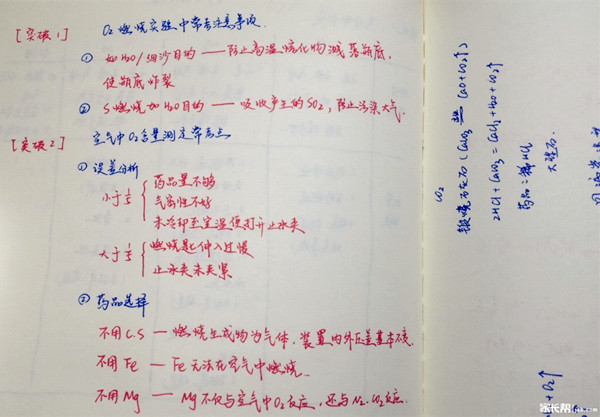 [突破1] O₂燃烧实验中常考注意事项.
① 加H₂O/细沙目的——防止高温熔化物溅落瓶底,
使瓶底炸裂
② S燃烧加H₂O目的——吸收产生的SO₂,防止污染大气.
[突破2] 空气中O₂含量测定常考点
① 误差分析
小于1/5 { 药品量不够
气密性不好
未冷却至室温便打开止水夹
大于1/5 { 燃烧匙伸入过慢
止水夹未夹紧
② 药品选择
不用C.S — 燃烧生成物为气体,装置内外压差基本不变.
不用Fe — Fe无法在空气中燃烧.
不用Mg — Mg不仅与空气中O₂反应,还与N₂.CO₂反应.
CO₂
煅烧石灰石(CaCO₃ 高温 CaO+CO₂↑)
2HCl+CaCO₃=CaCl₂+H₂O+CO₂↑
药品:稀HCl
大理石
+O₂↑
家长帮